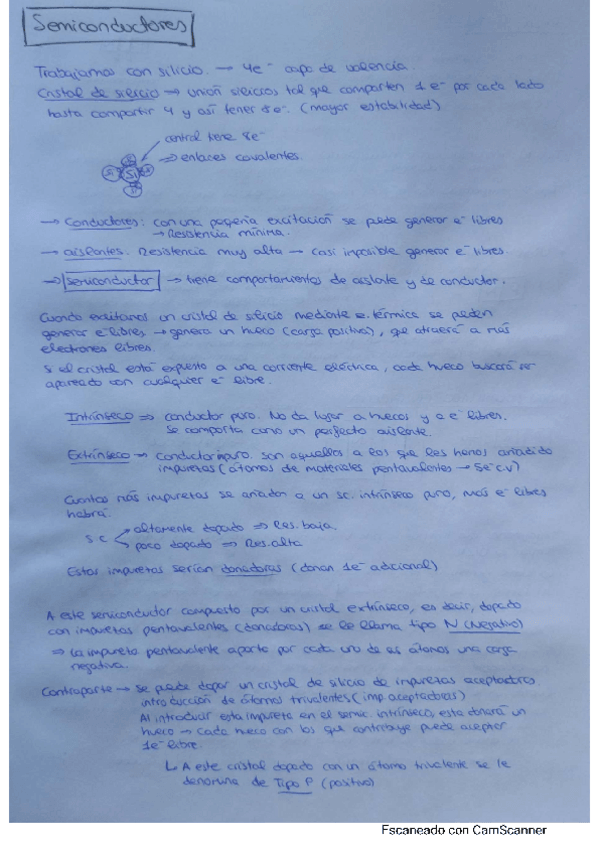 Semiconductores
Trabajamos con silicio. → 4e⁻ capa de valencia.
Cristal de silicio → unión silicios tal que comparten 1 e⁻ por cada lado
hasta compartir 4 y así tener 8e⁻. (mayor estabilidad)
central tiene 8e⁻
⇒ enlaces covalentes.
Si
→ Conductores: con una pequeña excitación se puede generar e⁻ libres
→ Resistencia mínima.
→ aislantes. Resistencia muy alta → Casi imposible generar e⁻ libres.
→ semiconductor → tiene comportamientos de aislante y de conductor.
Cuando excitamos un cristal de silicio mediante e. térmica se pueden
generar e⁻ libres → genera un hueco (carga positiva), que atraerá a más
electrones libres.
Si el cristal está expuesto a una corriente eléctrica, cada hueco buscará ser
apareado con cualquier e⁻ libre.
Intrínseco ⇒ conductor puro. No da lugar a huecos y a e⁻ libres.
Se comporta como un perfecto aislante.
Extrínseco → Conductor impuro. son aquellos a los que les hemos añadido
impurezas (átomos de materiales pentavalentes → 5e⁻ CV)
Cuantas más impurezas se añadan a un sc. intrínseco puro, más e⁻ libres
habrá.
sc altamente dopado ⇒ Res. baja.
poco dopado ⇒ Res. alta
Estas impurezas serían donadoras (donan 1e⁻ adicional)
A este semiconductor compuesto por un cristal extrínseco, es decir, dopado
con impurezas pentavalentes (donadoras) se le llama tipo N (negativo)
⇒ La impureza pentavalente aporta por cada uno de sus átomos una carga
negativa.
Contraparte → se puede dopar un cristal de silicio de impurezas aceptadoras
introducción de átomos trivalentes (imp. aceptadoras)
Al introducir esta impureza en el semic. intrínseco, esta donará un
hueco → Cada hueco con los que contribuye puede aceptar
1e⁻ libre.
↳ A este cristal dopado con un átomo trivalente se le
denomina de Tipo P (positivo)
Escaneado con CamScanner